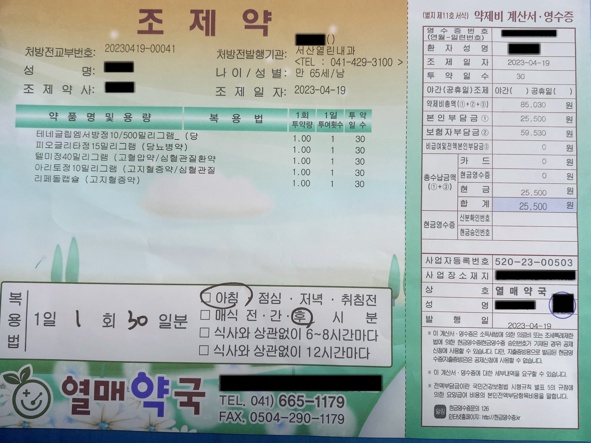 조 제 약
처방전교부번호: 20230419-00041
처방전발행기관: 서산열린내과
<TEL : 041-429-3100 >
성 명 :
나 이 / 성 별 : 만 65세/남
조 제 약 사 :
조 제 일 자 : 2023-04-19
약 품 명 및 용 량 복 용 법 1회 투약량 1일 투여횟수 투약 일수
테네글립엠서방정10/500밀리그램_ (당 1.00 1 30
피오글리타정15밀리그램 (당뇨병약) 1.00 1 30
텔미정40밀리그램 (고혈압약/심혈관질환약 1.00 1 30
아리토정10밀리그램 (고지혈증약/심혈관질 1.00 1 30
리페돌캡슐 (고지혈증약) 1.00 1 30
복용법
1일 1 회 30 일분
□ 아침 · 점심 · 저녁 · 취침전
□ 매식 전 · 간 · 후 시 분
□ 식사와 상관없이 6-8시간마다
□ 식사와 상관없이 12시간마다
열매약국
TEL. 041) 665-1179
FAX. 0504-290-1179
(별지 제11호 서식) 약제비 계산서·영수증
영 수 증 번 호
(연월-일련번호)
환 자 성 명
조 제 일 자 2023-04-19
투 약 일 수 30
야간(공휴일)조제 야간( ) 공휴일( )
약제비총액(①+②+③) 85,030 원
본인부담금 ① 25,500 원
보험자부담금 ② 59,530 원
비급여및전액본인부담금③ 0 원
총수납금액 (①+③)
카 드 0 원
현금영수증 0 원
현 금 25,500 원
합 계 25,500 원
현금영수증
신분확인번호
현금승인번호
사업자등록번호 520-23-00503
사 업 장 소 재 지
상 호 열매약국
성 명
발 행 일 2023-04-19
※ 이 계산서·영수증은 소득세법에 의한 의료비 또는 조세특례제한
법에 의한 현금영수증
신청에 사용할 수 있습니다. 다만, 지출증빙용으로 발급된 현금영
수증
※ 이 계산서·영수증에 대한 세부내역을 요구할 수 있습니다.
※ 전액부담금이란 국민건강보험법 시행규칙 별표 5의 규정에
의한 요양급여 비용의 본인전액부담항목비용을 말합니다.
현금영수증문의 126
인터넷홈페이지: http://현금영수증.kr